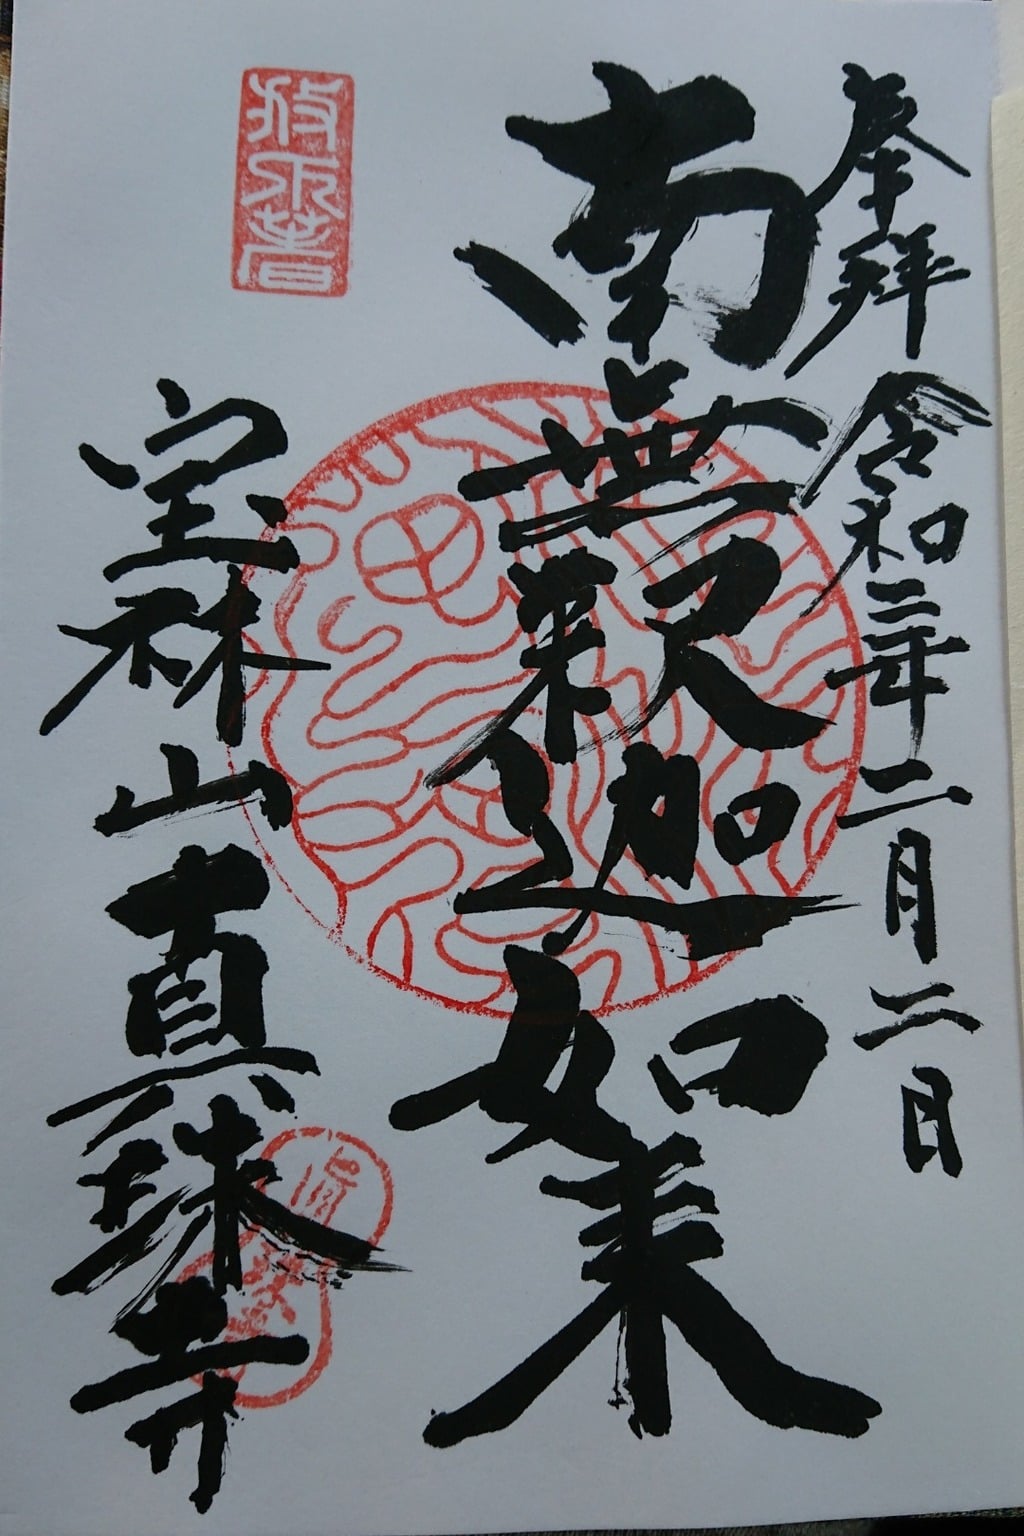 奉拝 令和二年二月二日
南無釈迦如来
宝林山真珠寺
放下著